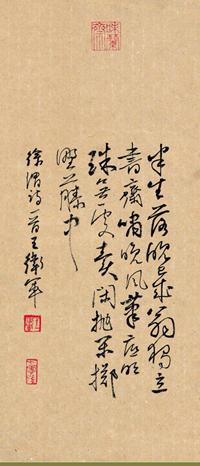 半生落魄已成翁独立
书斋啸晚风笔底明
珠无处卖闲抛闲掷
野藤中
徐渭诗一首王卫军